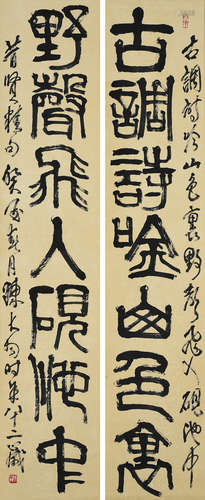 古調詩吟山色裏野聲飛入硯池中
古調詩唫山色裏
野聲飛入硯池中
昔賢句癸酉春月陳大羽時年八十二歲